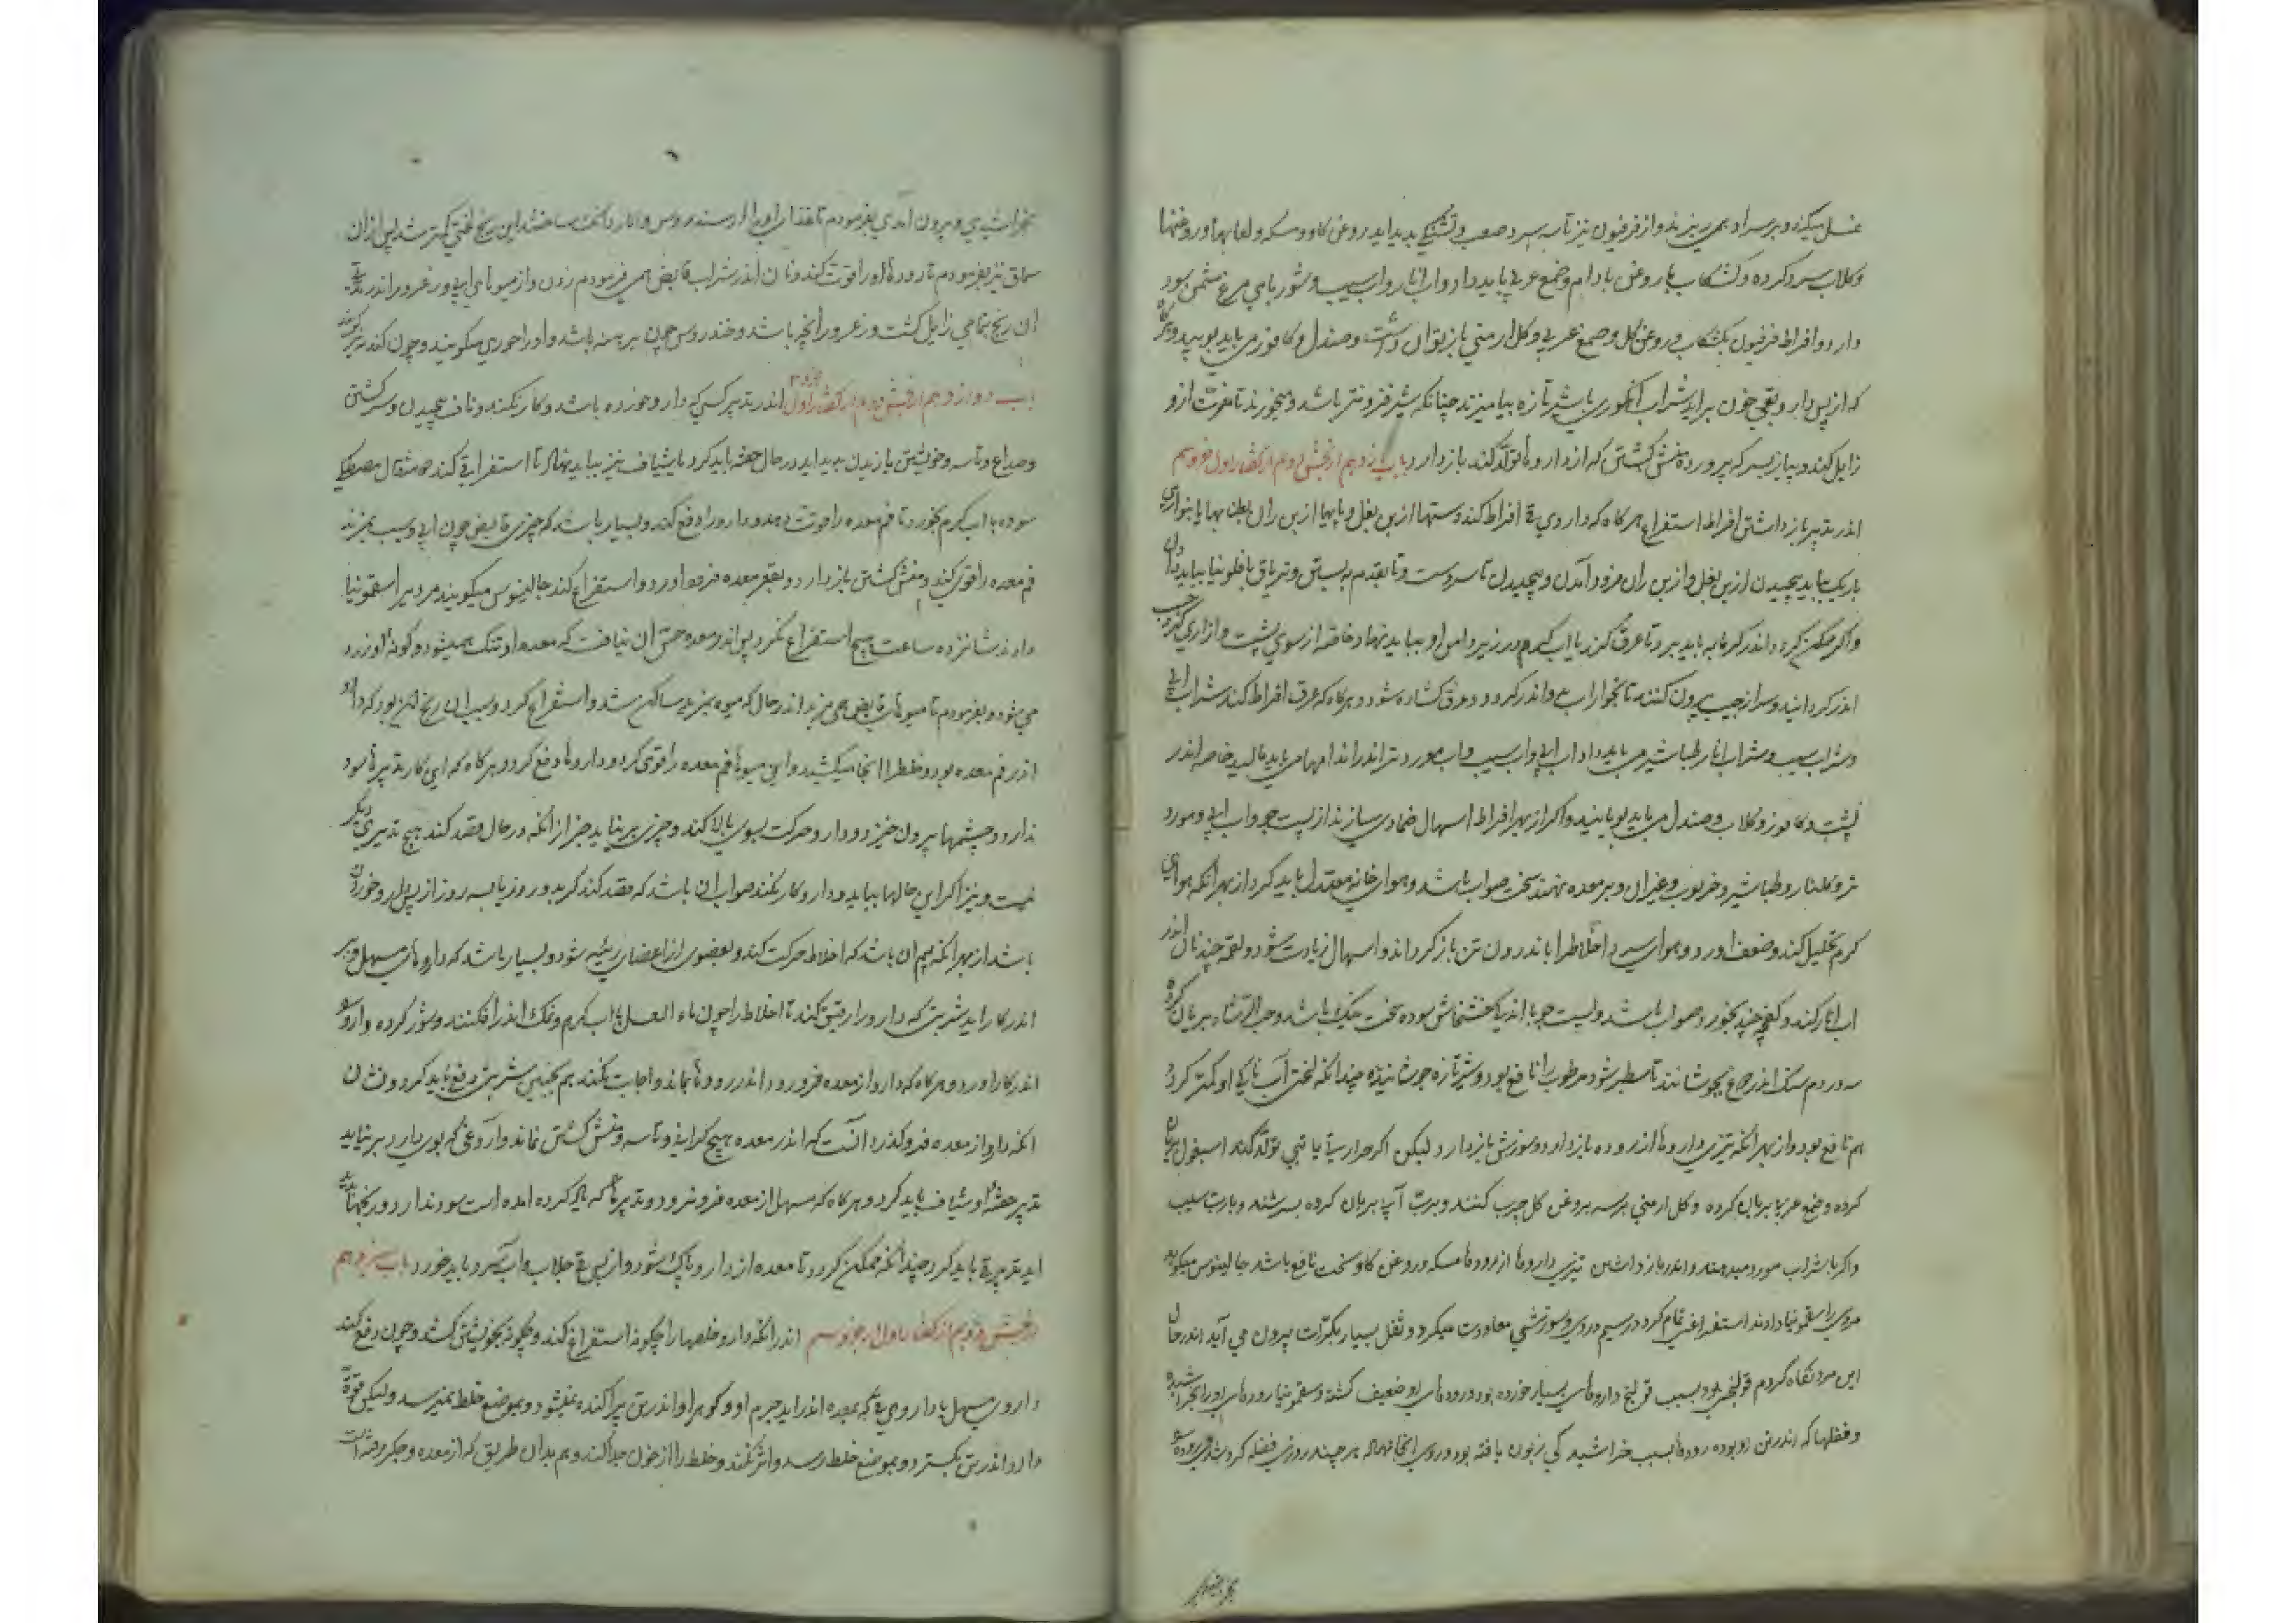 غسل میکند و بر سر او همی ریزند و از فرفیون نیز تاسه و درد صعب و تشنگی پدید اید روغن کاو و مسکه و لعابها و روغنها
و کلاب سرد کرده و کشکاب با روغن بادام و صمغ عربی باید داد و اب انار و اب سیب و شوربای مرغ مسمن سود
دارد و افراط فرفیون بکشکاب و روغن کل و صمغ عربی و کل ارمنی باز توان داشت و صندل و کافور می باید بویید و هرکاه
که از پس دارو بقی خون براید شراب انکوری با شیر تازه بیامیزند چنانکه شیر فزونتر باشد و بخورند تا مضرت ازو
زایل کند و پیاز بسرکه پرورده منش کشتن که از داروها تولد کند باز دارد باب یازدهم از بخش دوم از کفتار اول جزو سیم
اندر تدبیر باز داشتن افراط استفراغ هرکاه که داروی قی افراط کند دستها از بن بغل و پایها از بن ران بطنابها یا بنواری
باریک بباید پیچیدن از بن بغل و از بن ران فرود آمدن و پیچیدن تا سر دست و تا بقدم و بستن و تریاق یا فلونیا بباید دادن
و اکر ممکن کردد اندر کرمابه باید برد تا عرق کند یا اب کرم در زیر دامن او بباید نهاد و خاصه از سوی پشت و ازاری کرد
اندر کردانید و سر از جیب بیرون کنند تا بخار اب بوی اندر کیرد و عرق کشاده شود و هرکاه که عرق افراط کند شراب ابی
و شراب سیب و شراب انار و طباشیر می باید داد و اب ابی و اب سیب و اب مورد تر اندر اندامها می باید مالید خاصه اندر
پشت و کافور و کلاب و صندل می باید بویانید و اکر از بهر افراط اسهال ضمادی سازند از پست جو و اب ابی و مورد
تر و کلنار و طباشیر و خرنوب و غیر ان و بر معده نهند سخت صواب باشد و هوای خانه معتدل باید کرد از بهر انکه هوای
کرم تحلیل کند و ضعف اورد و هوای سرد اخلاط را باندرون تن باز کرداند و اسهال زیادت شود و لقمه چند نان اندر
اب انار کند و کفچه چند بخورد صواب باشد و پست جو با اندک خشخاش سوده سخت نیک باشد و حب الرشاد بریان کرده
سه درم سنک اندر دوغ بجوشانند تا سطبر شود مرطوب را نافع بود و شیر تازه جوشانیده چندانکه لختی آب ناکی او کمتر کردد
هم نافع بود و از بهر انکه تیزی داروها از روده باز دارد و سوزش باز دارد لیکن اکر حرارت یا تبی تولد کند اسبغول بریان
کرده و صمغ عربی بریان کرده و کل ارمنی هر سه بروغن کل چرب کنند و برب آبی بریان کرده بسرشند و با رب سیب
و اکر با شراب مورد میدهند و اندر باز داشتن تیزی داروها از رودها مسکه و روغن کاو سخت نافع باشد جالینوس میکوید
مردی را سقمونیا دادند استفراغی تمام کرد در سیم روز و سوزشی معاودت میکرد و ثفل بسیار بکرات بیرون می آید اندر حال
این مرد نکاه کردم قولنجی بود بسبب قولنج داروهای بسیار خورده بود و رودهای او ضعیف کشته و سقمونیا رودهای او را بخراشیده
و فضلها که اندر تن او بوده رودها بسبب خراشیدکی زبون یافته بود و روی انجا نهاده هر چند روزی فضله کرد شدی و روده
بخراشیدی و بیرون آمدی بفرمودم تا غذای او را از سندروس و انار دانک ساختند این رنج لختی کمتر شد پس از ان
سماق نیز بفرمودم تا رودهٔ او را قوت کند و نان اندر شراب قابض همی فرمودم زدن و از میوها ابی و زعرور اندر
ان رنج بتمامی زایل کشت و زعرور انجیر باشد و خندروس چون برهنه باشد و او را خوری میکویند و چون کندم
باب دوازدهم از بخش دوم از کفتار اول اندر تدبیر کسی که دارو خورده باشد و کار نکند و ناف پیچیدن و سر کشتن
و صداع و تاسه و خویشتن یازیدن پدید اید در حال حقنه باید کرد یا شیاف نیز بباید نهاد تا استفراغی کند و مثقال مصطکی
سوده باب کرم بخورد تا فم معده را قوت دهد و دارو را دفع کند و بسیار باشد که چیزی قابض چون ابی و سیب بمزند
فم معده را قوی کند و منش کشتن باز دارد و بقعر معده فرو اورد و استفراغ کند جالینوس میکوید مردی را سقمونیا
دادند شانزده ساعت هیچ استفراغ نکرد پس اندر معده حس ان نیافت که معده او تنک همیشود و کونهٔ او زرد
می شود بفرمودم تا میوهای قابض همی مزید اندر حال که میوه بمزید ساکن شد و استفراغ کرد و سبب ان رنج انچ بود که دارو
اندر فم معده بود و خلط را انجا میکشید و این میوها فم معده را قوی کرد و داروها دفع کرد و هرکاه که این کار تدبیرها سود
ندارد و چشمها بیرون خیزد و دارو حرکت بسوی بالا کند و چیزی بر نیاید جز از انکه در حال فصد کند هیچ تدبیری دیکر
نیست و نیز اکر این حالها بیاید و دارو کار نکند صواب ان باشد که فصد کند کرچه دو روز یا سه روز از پس دارو خوردن
باشد از بهر انکه بیم ان باشد که اخلاط حرکت کند و بعضوی از اعضای رئیسه شود و بسیار باشد که داروهای مسهل دیر
اندر کار اید شربتی که دارو را رقیق کند تا اخلاط را چون ماء العسل یا اب کرم و نمک اندر افکنند و شور کرده دارو
اندر کار اورد و هرکاه که دارو از معده فرو رود و اندر رودها بماند و اجابت نکند هم بچنین شربتی دفع باید کرد و نشان
انکه دارو از معده فرو کذرد انست که اندر معده هیچ کرانی و تاسه و منش کشتن نماند و آروغی که بوی دارو دارد بر نیاید
تدبیر حقنه و شیاف باید کرد و هرکاه که مسهل از معده فرو نرود و تدبیرها که یاد کرده امده است سود ندارد و رنجها
اید تدبیر قی باید کرد چندانکه ممکن کردد تا معده از دارو پاک شود و از پس قی جلاب و اب سرد باید خورد باب سیزدهم
از بخش دوم از کفتار اول جزو سیم اندر انکه دارو خلطها را چکونه استفراغ کند و چکونه بخویشتن کشد و چون دفع کند
داروی مسهل یا داروی قی که بمعده اندر اید جرم او و کوهر او اندر تن پراکنده نمیشود و بموضع خلط نمیرسد ولیکن قوة
دارو اندر تن بکسترد و بموضع خلط رسد و اثر کند و خلط را از خون جدا کند و هم بدان طریق که از معده و جکر رفته است